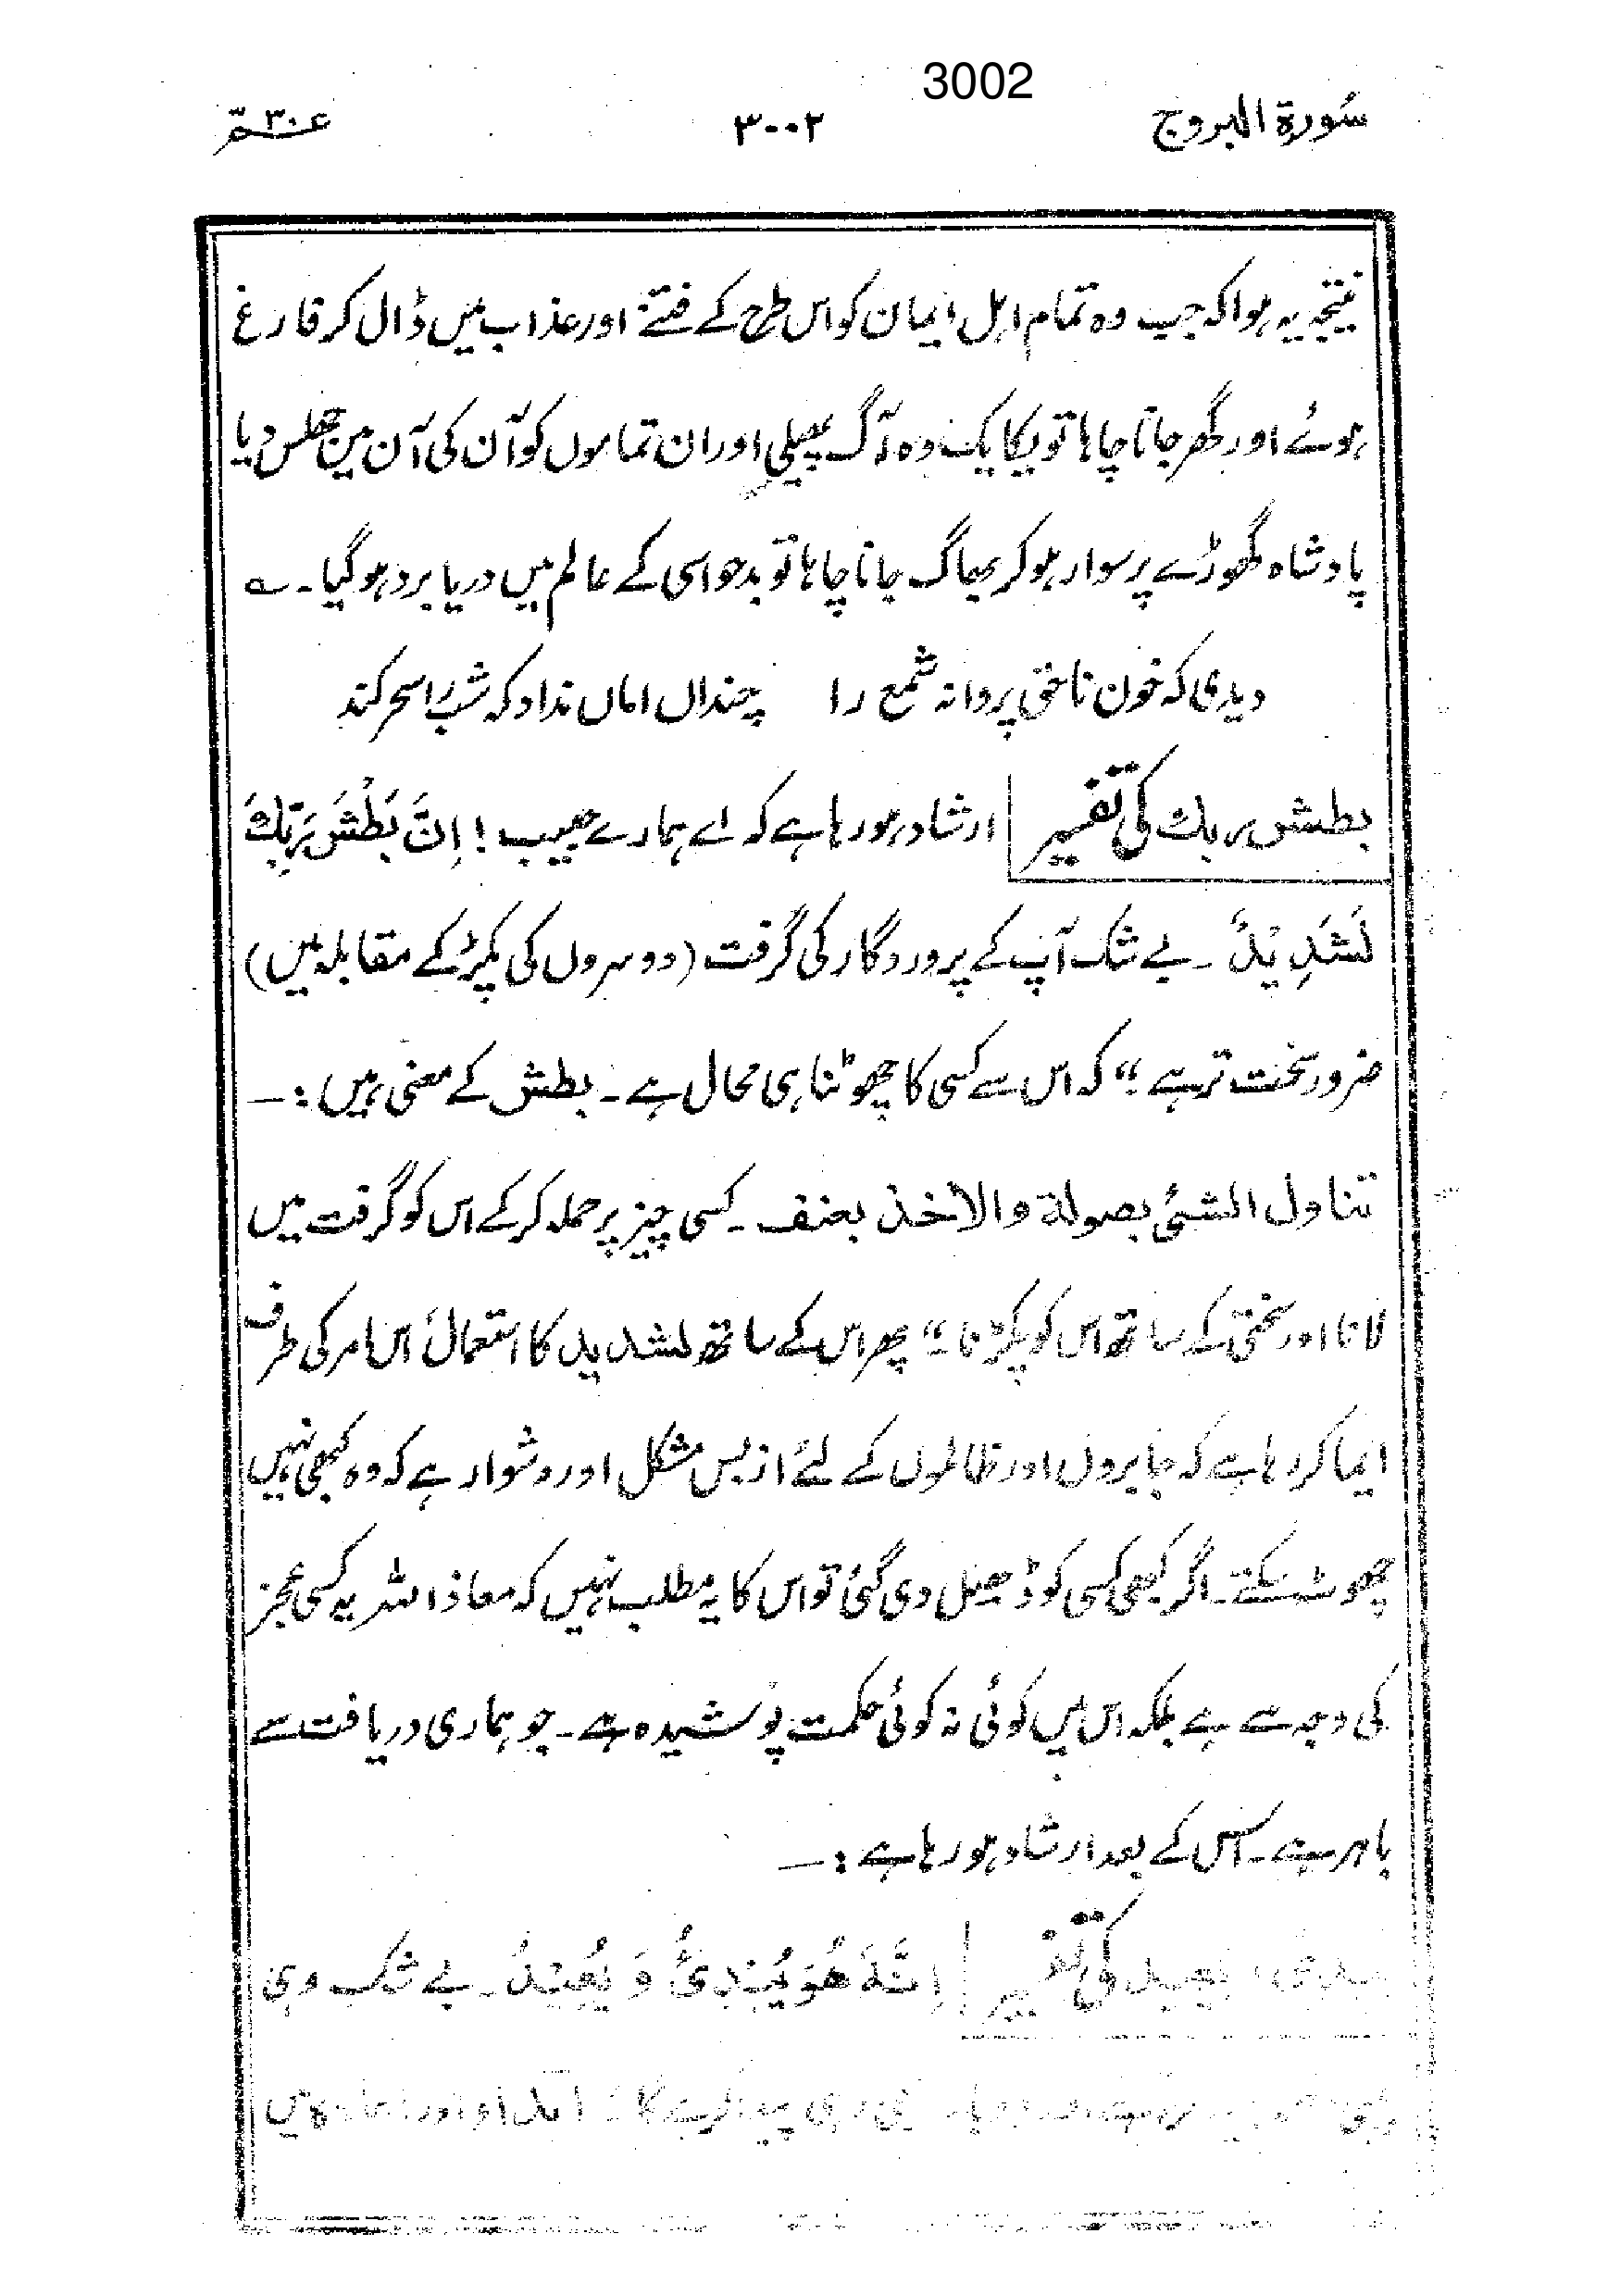 3002
سُورۃ البروج ۳۰۰۲ عم ۳۰
نتیجہ یہ ہوا کہ جب وہ تمام اہل ایمان کو اس طرح کے فتنے اور عذاب میں ڈال کر فارغ
ہوئے اور گھر جانا چاہا تو یکایک وہ آگ پھیلی اور ان تماموں کو آن کی آن میں جھلس دیا
پادشاہ گھوڑے پر سوار ہو کر بھاگ جانا چاہا تو بدحواسی کے عالم میں دریا برد ہو گیا۔ ؎
دیدی کہ خون ناحق پروانہ شمع را چنداں اماں نداد کہ شب را سحر کند
بطش ربك کی تفسیر ارشاد ہو رہا ہے کہ اے ہمارے حبیب! اِنَّ بَطْشَ رَبِّكَ
لَشَدِیْدٌ۔ بے شک آپ کے پروردگار کی گرفت (دوسروں کی پکڑ کے مقابلہ میں)
ضرور سخت تر ہے“ کہ اس سے کسی کا چھوٹنا ہی محال ہے۔ بطش کے معنی ہیں :۔
تناول الشئ بصولة والاخذ بعنف۔ کسی چیز پر حملہ کر کے اس کو گرفت میں
لانا اور سختی کے ساتھ اس کو پکڑنا“ پھر اس کے ساتھ لشدید کا استعمال اس امر کی طرف
ایما کر رہا ہے کہ جابروں اور ظالموں کے لئے از بس مشکل اور دشوار ہے کہ وہ کبھی نہیں
چھوٹ سکتے۔ اگر کبھی کسی کو ڈھیل دی گئی تو اس کا یہ مطلب نہیں کہ معاذ اللہ یہ کسی عجز
کی وجہ سے ہے بلکہ اس میں کوئی نہ کوئی حکمت پوشیدہ ہے۔ جو ہماری دریافت سے
باہر ہے۔ اس کے بعد ارشاد ہو رہا ہے :۔
یبدئ و یعید کی تفسیر اِنَّهٗ هُوَ یُبْدِئُ وَ یُعِیْدُ۔ بے شک وہی
وہی پیدا کرے گا